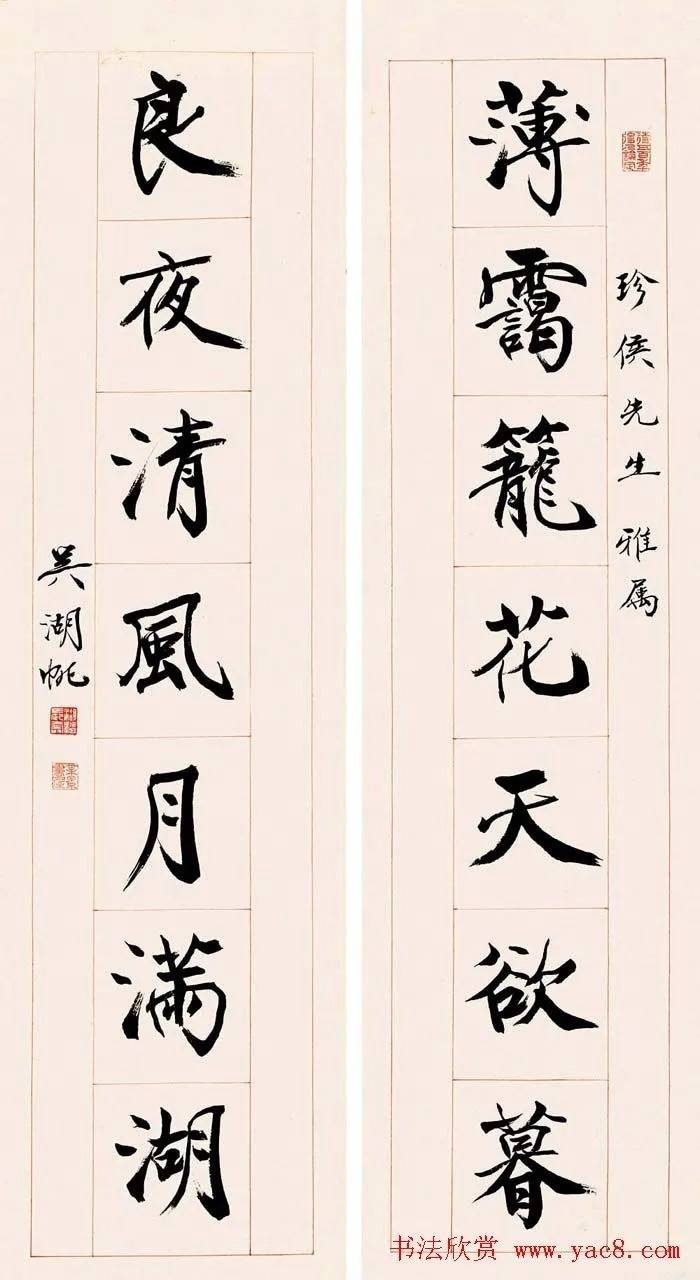 薄靄籠花天欲暮
珍侯先生雅属
良夜清風月滿湖
吳湖帆
书法欣赏 www.yac8.com